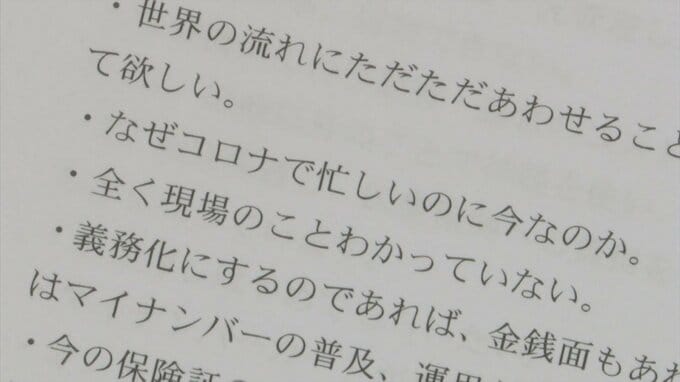 ・世界の流れにただただあわせること
て欲しい。
・なぜコロナで忙しいのに今なのか。
・全く現場のことわかっていない。
・義務化にするのであれば、金銭面もあ
はマイナンバーの普及、運用
・今の保険証の